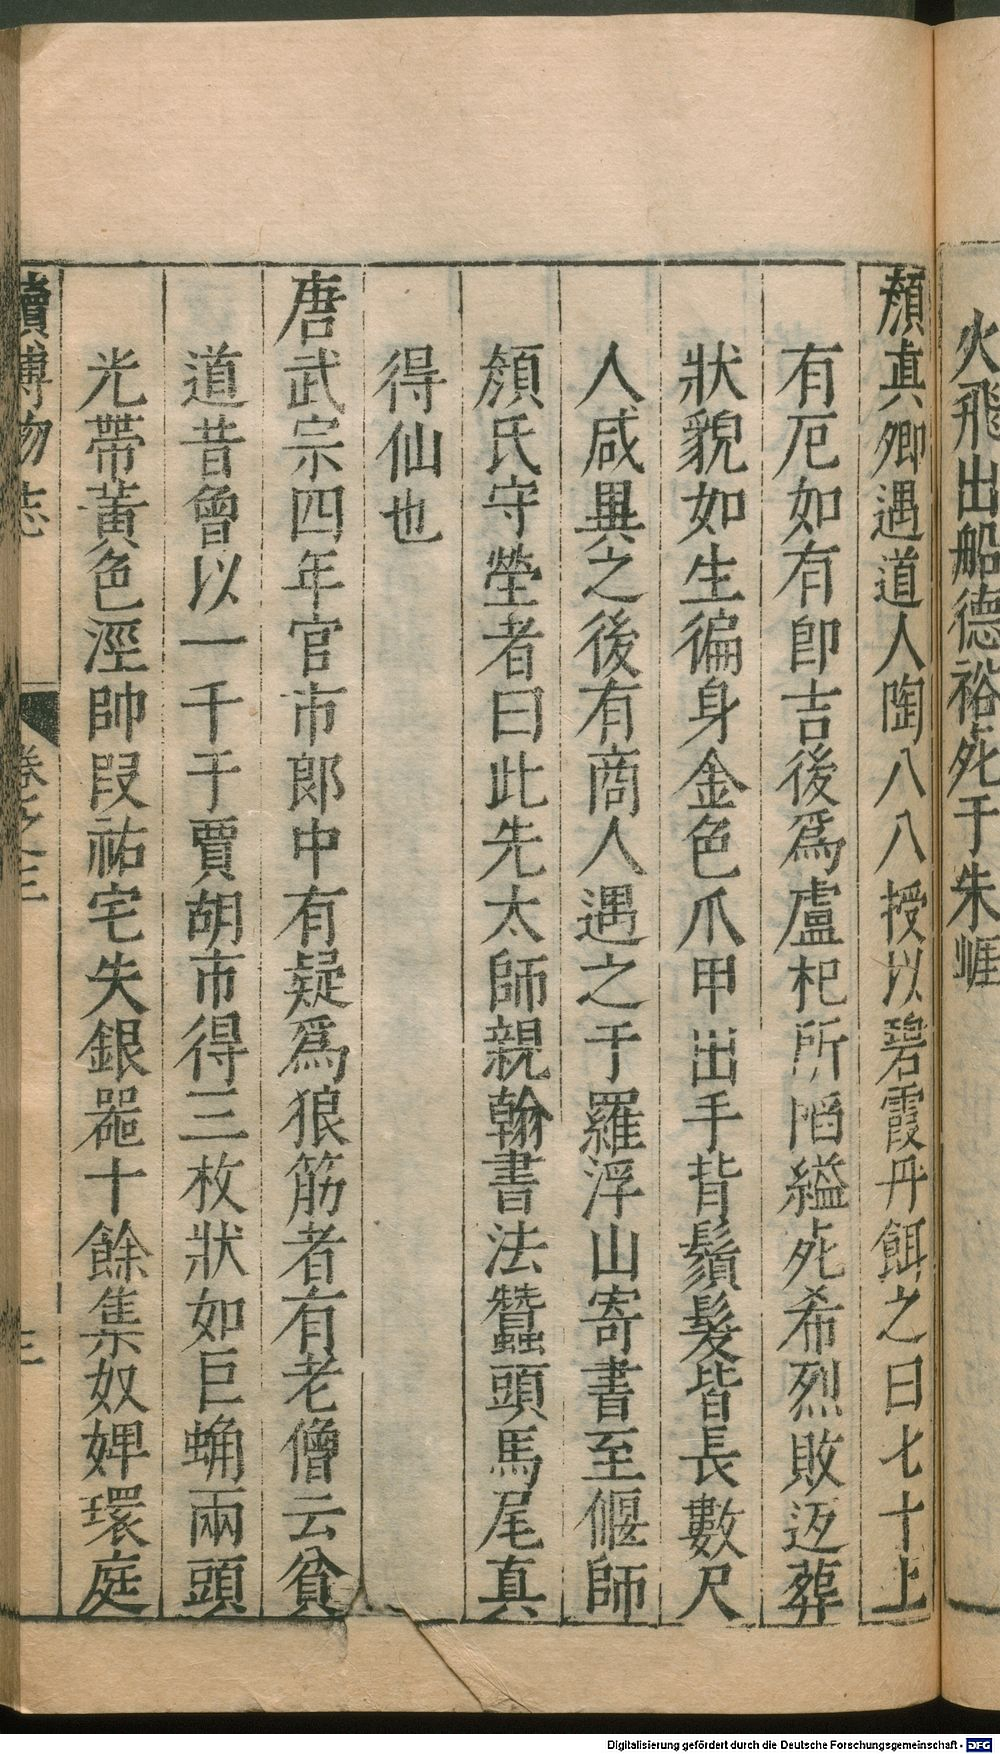 火飛出船德裕死于朱崕
顏真卿遇道人陶八八授以碧霞丹餌之曰七十上
有厄如有卽吉後爲盧杞所陷縊死希烈敗返葬
狀貌如生徧身金色爪甲出手背鬚髮皆長數尺
人咸異之後有商人遇之于羅浮山寄書至偃師
顏氏守塋者曰此先太師親翰書法蠶頭馬尾真
得仙也
唐武宗四年官市郎中有疑爲狼筋者有老僧云貧
道昔曾以一千于賈胡市得三枚狀如巨蛹兩頭
光帶黃色涇帥段祐宅失銀器十餘集奴婢環庭
續博物志
卷之三
三
Digitalisierung gefördert durch die Deutsche Forschungsgemeinschaft - DFG